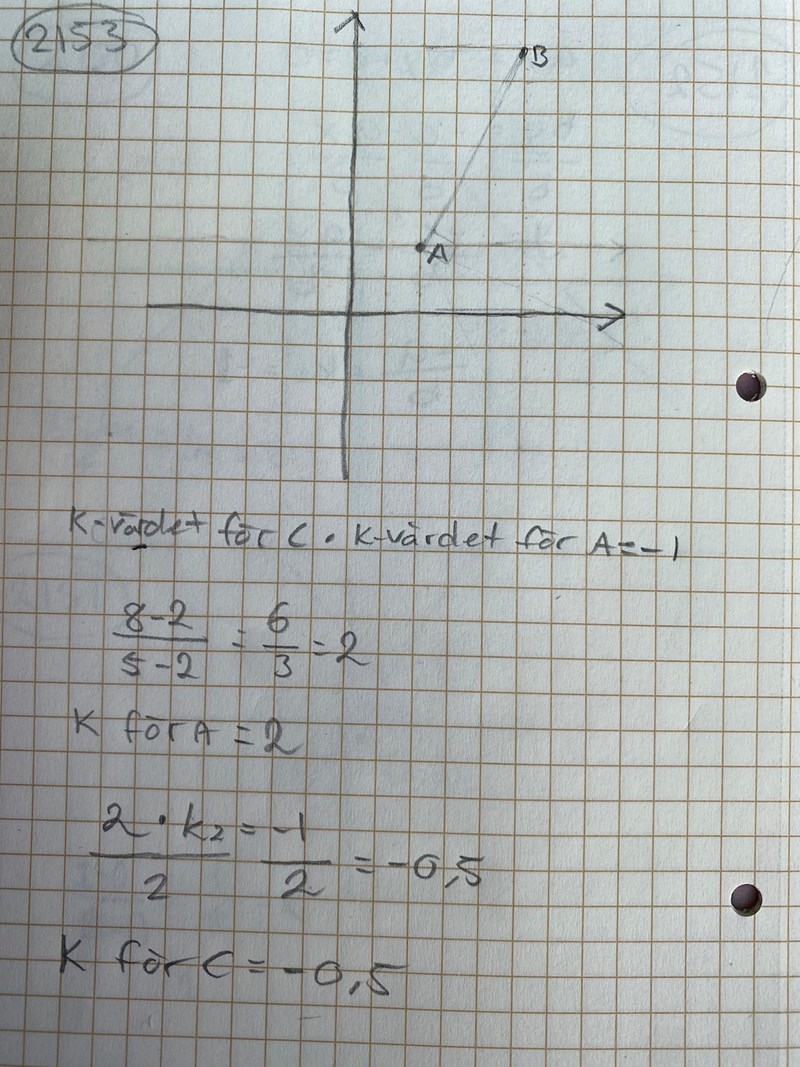 2153
B
A
K-värdet för C · K-värdet för A = -1
8-2 / 5-2 = 6/3 = 2
K för A = 2
2 · k2 / 2 = -1 / 2 = -0,5
K för C = -0,5